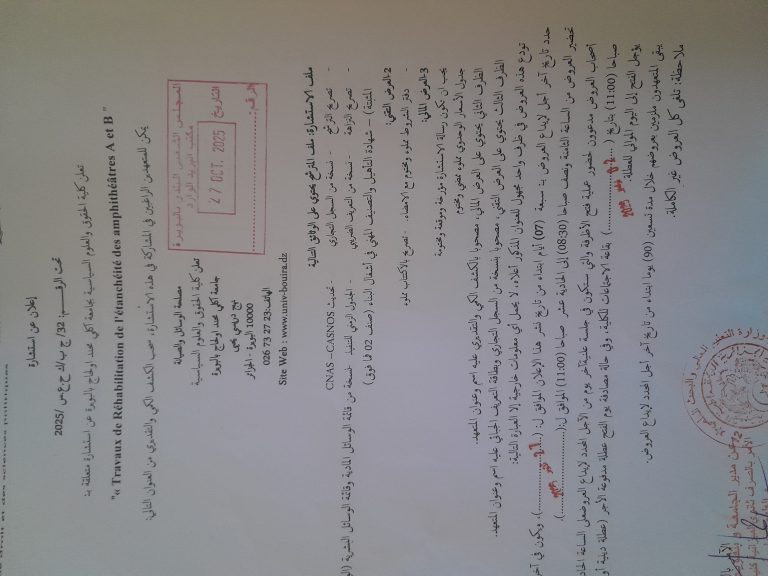 droit et des sciences politiques
إعلان عن استشارة
تحت الرقم: 32/ ج ب/ك ح ع س /2025
تعلن كلية الحقوق والعلوم السياسية بجامعة آكلي محند اولحاج بالبويرة عن استشارة متعلقة بـ:
"« Travaux de Réhabilitation de l'étanchéité des amphithéâtres A et B "
يمكن للمتعهدين الراغبين في المشاركة في هذه الاستشارة، سحب الكشف الكمي والتقديري من العنوان التالي:
مصلحة الوسائل والصيانة
تعلن كلية الحقوق والعلوم السياسية
جامعة آكلي محند اولحاج بالبويرة
نهج دريسي يحيى
10000 البويرة - الجزائر
الهاتف: 23 27 73 026
Site Web : www.univ-bouira.dz
المجلس الشعبي البلدي بالبويرة
مكتب البريد الوارد
التاريخ
27 OCT. 2025
الرقم:
ملف الاستشارة: ملف الترشح يحتوي على الوثائق التالية
- تصريح الترشح - نسخة من السجل التجاري - تحديث CNAS –CASNOS
- تصريح النزاهة - نسخة من التعريف الضريبي - الجدول الزمني للتنفيذ - نسخة من قائمة الوسائل المادية وقائمة الوسائل البشرية
المثبتة) – شهادة التأهيل والتصنيف المهني في أشغال البناء (صنف 02 فما فوق)
2-العرض التقني:
- دفتر الشروط مملوء ومختوم مع الامضاء. - تصريح بالاكتتاب مملوء
3-العرض المالي:
يجب ان يكون رسالة الاستشارة مؤرخة وموقعة ومختومة
جدول الأسعار الوحدوي مملوء ممضي ومختوم
الظرف الثاني يحتوي على العرض المالي، مصحوبا بالكشف الكمي والتقديري عليه اسم وعنوان المتعهد.
الظرف الثالث يحتوي على العرض التقني، مصحوبا بنسخة من السجل التجاري وبطاقة التعريف الجبائي عليه اسم وعنوان المتعهد.
تودع هذه العروض في ظرف واحد مجهول للعنوان المذكور أعلاه، لا يحمل اي معلومات خارجية إلا العبارة التالية:
حدد تاريخ آخر أجل لإيداع العروض بـ سبعة (07) أيام ابتداء من تاريخ نشر هذا الاعلان الموافق ل: (...............). ويكون في آخر
تحضير العروض من الساعة الثامنة ونصف صباحا (08:30) إلى الحادية عشر صباحا (11:00) الموافق ل:(...............).
أصحاب العروض مدعوون لحضور عملية فتح الأظرفة والتي ستكون في جلسة علنية آخر يوم من الأجل المحدد لإيداع العروض على الساعة
صباحا (11:00) بتاريخ (...............) بقاعة الاجتماعات للكلية، وفي حالة مصادفة يوم الفتح عطلة مدفوعة الأجر (عطلة دينية أو
يؤجل الفتح إلى اليوم الموالي للعطلة.
يبقى المتعهدون ملزمين بعروضهم خلال مدة تسعين (90) يوما ابتداء من تاريخ آخر أجل المحدد لإيداع العروض.
ملاحظة: تلغى كل العروض غير الكاملة.
عن مدير الجامعة